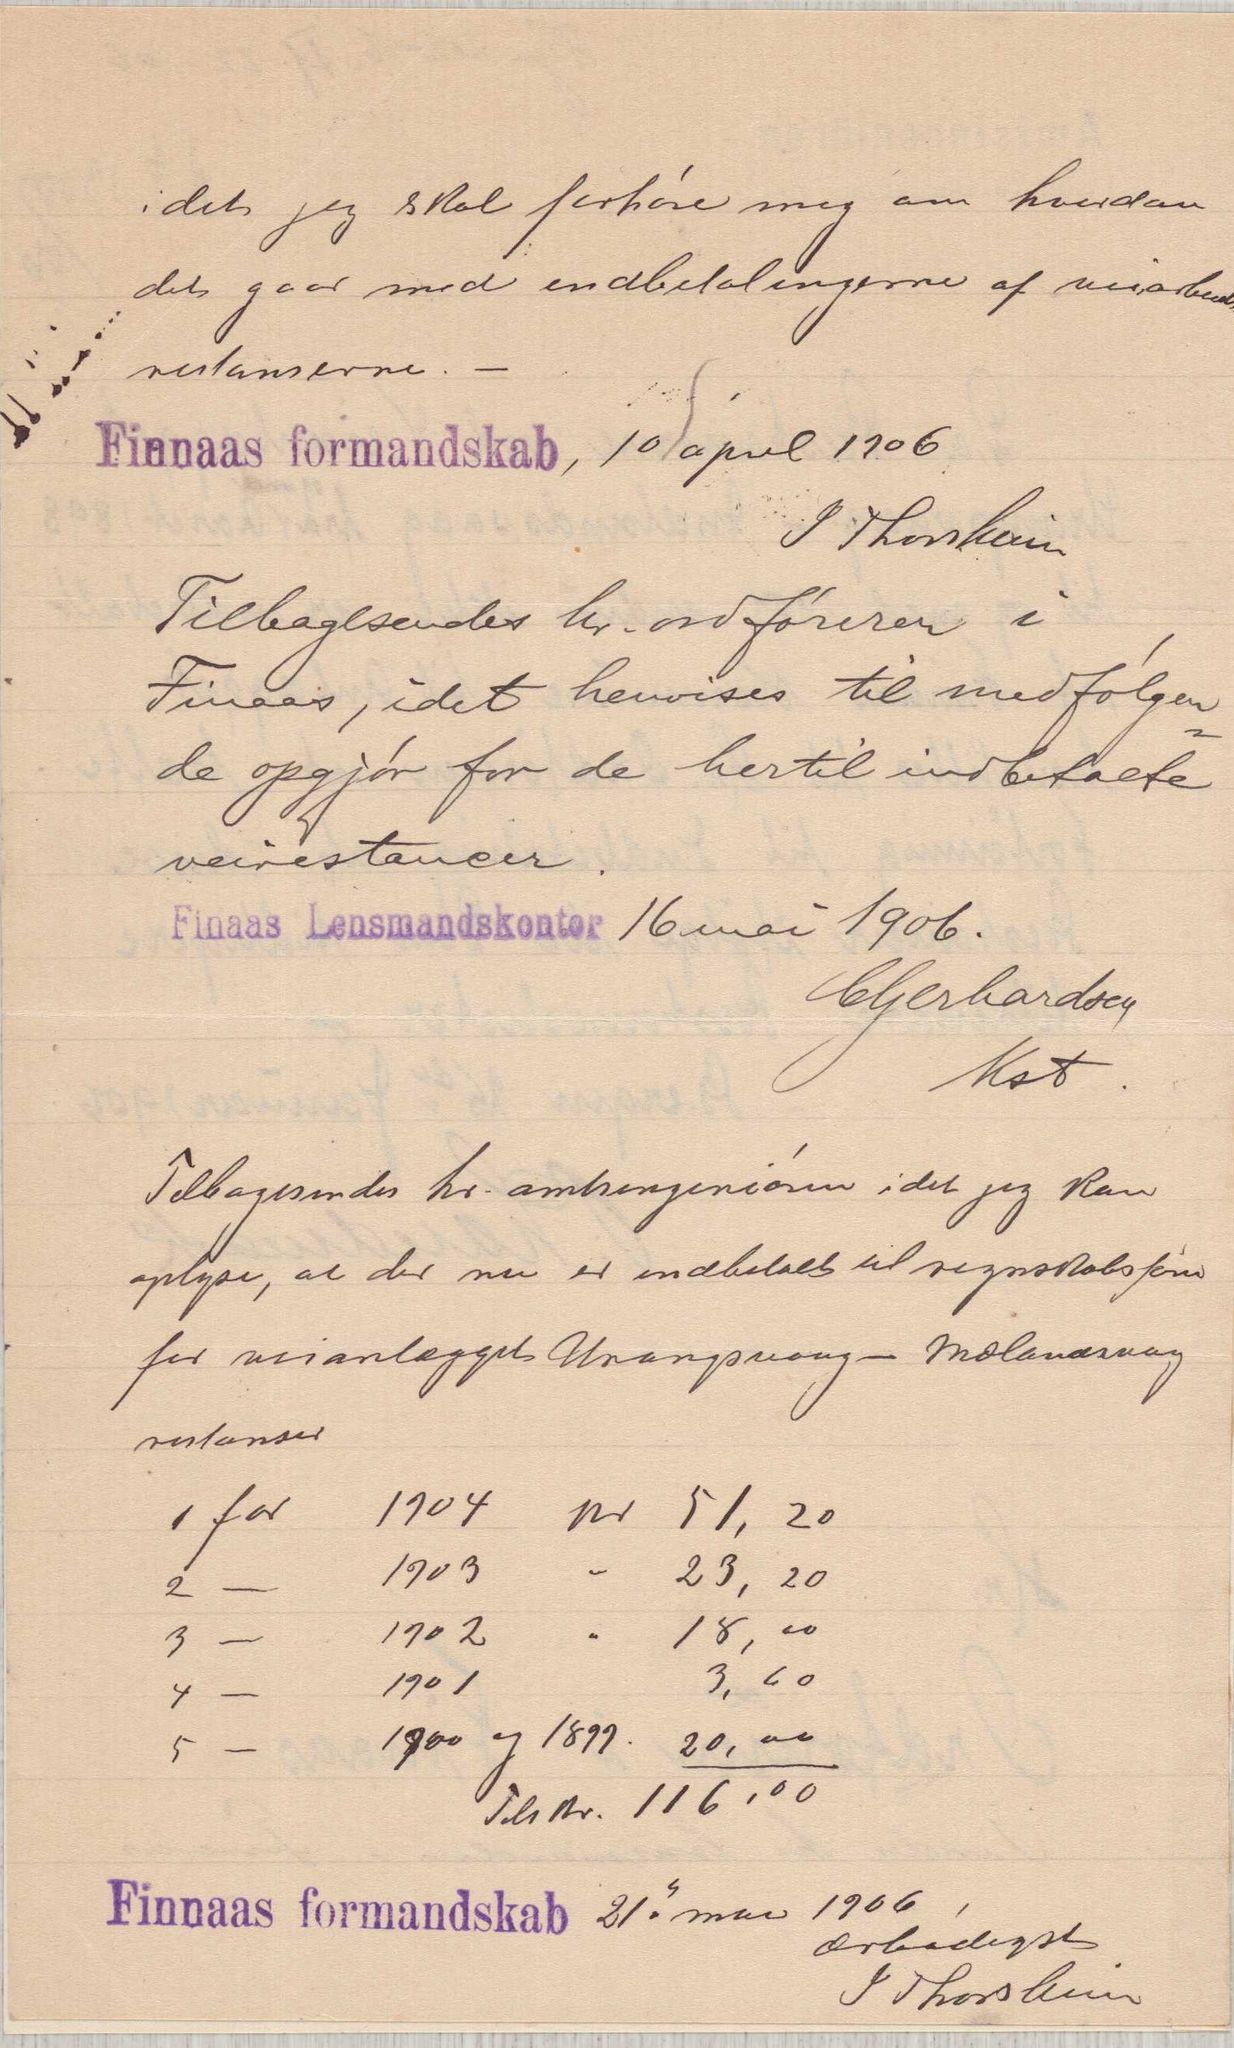 idet jeg skal forhöre mig om hvordan
det gaar med indbetalingerne af veiarbeids
restanserne. —
Finnaas formandskab, 10/ april 1906
J Thorsheim
Tilbagesendes hr. ordföreren i
Finaas, idet henvises til medfölgen=
de opgjör for de hertil indbetalte
veirestancer.
Finaas Lensmandskontor 16 mai 1906.
EGerhardsen
Kst.
Tilbagesendes hr. amtsingeniören idet jeg kan
oplyse, at der nu er indbetalt til regnskabsförer
for veianlægget Urangsvaag – Mælandsvaag
restanser
1 for 1904 kr 51,20
2 — 1903 " 23,20
3 — 1902 " 18,00
4 — 1901 3,60
5 — 1900 og 1899. 20,00
Tils kr. 116,00
Finnaas formandskab 21. mai 1906,
ærbödigst
J Thorsheim